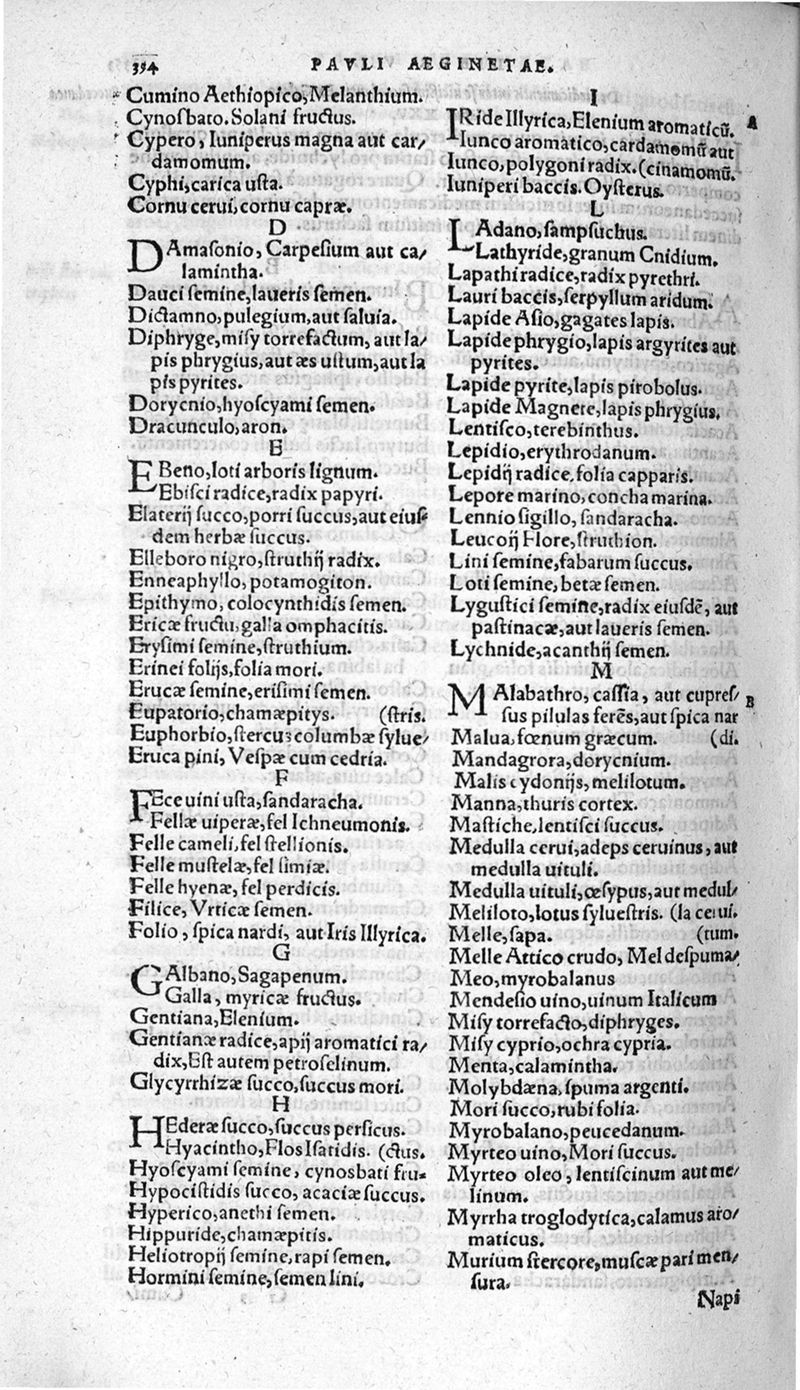 354
PAVLI AEGINETAE.
Cumino Aethiopico, Melanthium.
Cynoſbato. Solani fructus.
Cypero, Iuniperus magna aut car/
damomum.
Cyphi, carica uſta.
Cornu cerui, cornu capræ.
D
DAmaſonio, Carpeſium aut ca/
lamintha.
Dauci ſemine, laueris ſemen.
Dictamno, pulegium, aut ſaluia.
Diphryge, miſy torrefactum, aut la/
pis phrygius, aut æs uſtum, aut la
pis pyrites.
Dorycnio, hyoſcyami ſemen.
Dracunculo, aron.
E
EBeno, loti arboris lignum.
Ebiſci radice, radix papyri.
Elaterij ſucco, porri ſuccus, aut eiuſ
dem herbæ ſuccus.
Elleboro nigro, ſtruthij radix.
Enneaphyllo, potamogiton.
Epithymo, colocynthidis ſemen.
Ericæ fructu, galla omphacitis.
Eryſimi ſemine, ſtruthium.
Erinei folijs, folia mori.
Erucæ ſemine, eriſimi ſemen.
Eupatorio, chamæpitys. (ſtris.
Euphorbio, ſtercus columbæ ſylue/
Eruca pini, Veſpæ cum cedria.
F
FEce uini uſta, ſandaracha.
Fellæ uiperæ, fel Ichneumonis.
Felle cameli, fel ſtellionis.
Felle muſtelæ, fel ſimiæ.
Felle hyenæ, fel perdicis.
Filice, Vrticæ ſemen.
Folio, ſpica nardi, aut Iris Illyrica.
G
GAlbano, Sagapenum.
Galla, myricæ fructus.
Gentiana, Elenium.
Gentianæ radice, apij aromatici ra/
dix, Eſt autem petroſelinum.
Glycyrrhizæ ſucco, ſuccus mori.
H
HEderæ ſucco, ſuccus perſicus.
Hyacintho, Flos Iſatidis. (ctus.
Hyoſcyami ſemine, cynosbati fru-
Hypociſtidis ſucco, acaciæ ſuccus.
Hyperico, anethi ſemen.
Hippuride, chamæpitis.
Heliotropij ſemine, rapi ſemen.
Hormini ſemine, ſemen lini.
I
IRide Illyrica, Elenium aromaticũ. A
Iunco aromatico, cardamomũ aut
Iunco, polygoni radix. (cinamomũ.
Iuniperi baccis. Oyſterus.
L
LAdano, ſampſuchus.
Lathyride, granum Cnidium.
Lapathi radice, radix pyrethri.
Lauri baccis, ſerpyllum aridum.
Lapide Aſio, gagates lapis.
Lapide phrygio, lapis argyrites aut
pyrites.
Lapide pyrite, lapis pirobolus.
Lapide Magnete, lapis phrygius.
Lentiſco, terebinthus.
Lepidio, erythrodanum.
Lepidij radice, folia capparis.
Lepore marino, concha marina.
Lennio ſigillo, ſandaracha.
Leucoij Flore, ſtruthion.
Lini ſemine, fabarum ſuccus.
Loti ſemine, betæ ſemen.
Lyguſtici ſemine, radix eiuſdẽ, aut
paſtinacæ, aut laueris ſemen.
Lychnide, acanthij ſemen.
M
MAlabathro, caſſia, aut cupreſ/ B
ſus pilulas ferẽs, aut ſpica nar
Malua, fœnum græcum. (di.
Mandagrora, dorycnium.
Malis cydonijs, melilotum.
Manna, thuris cortex.
Maſtiche, lentiſci ſuccus.
Medulla cerui, adeps ceruinus, aut
medulla uituli.
Medulla uituli, œſypus, aut medul/
Meliloto, lotus ſylueſtris. (la cerui.
Melle, ſapa. (tum.
Melle Attico crudo, Mel deſpuma/
Meo, myrobalanus
Mendeſio uino, uinum Italicum
Miſy torrefacto, diphryges.
Miſy cyprio, ochra cypria.
Menta, calamintha.
Molybdæna, ſpuma argenti.
Mori ſucco, rubi folia.
Myrobalano, peucedanum.
Myrteo uino, Mori ſuccus.
Myrteo oleo, lentiſcinum aut me/
linum.
Myrrha troglodytica, calamus aro/
maticus.
Murium ſtercore, muſcæ pari men/
ſura.
Napi